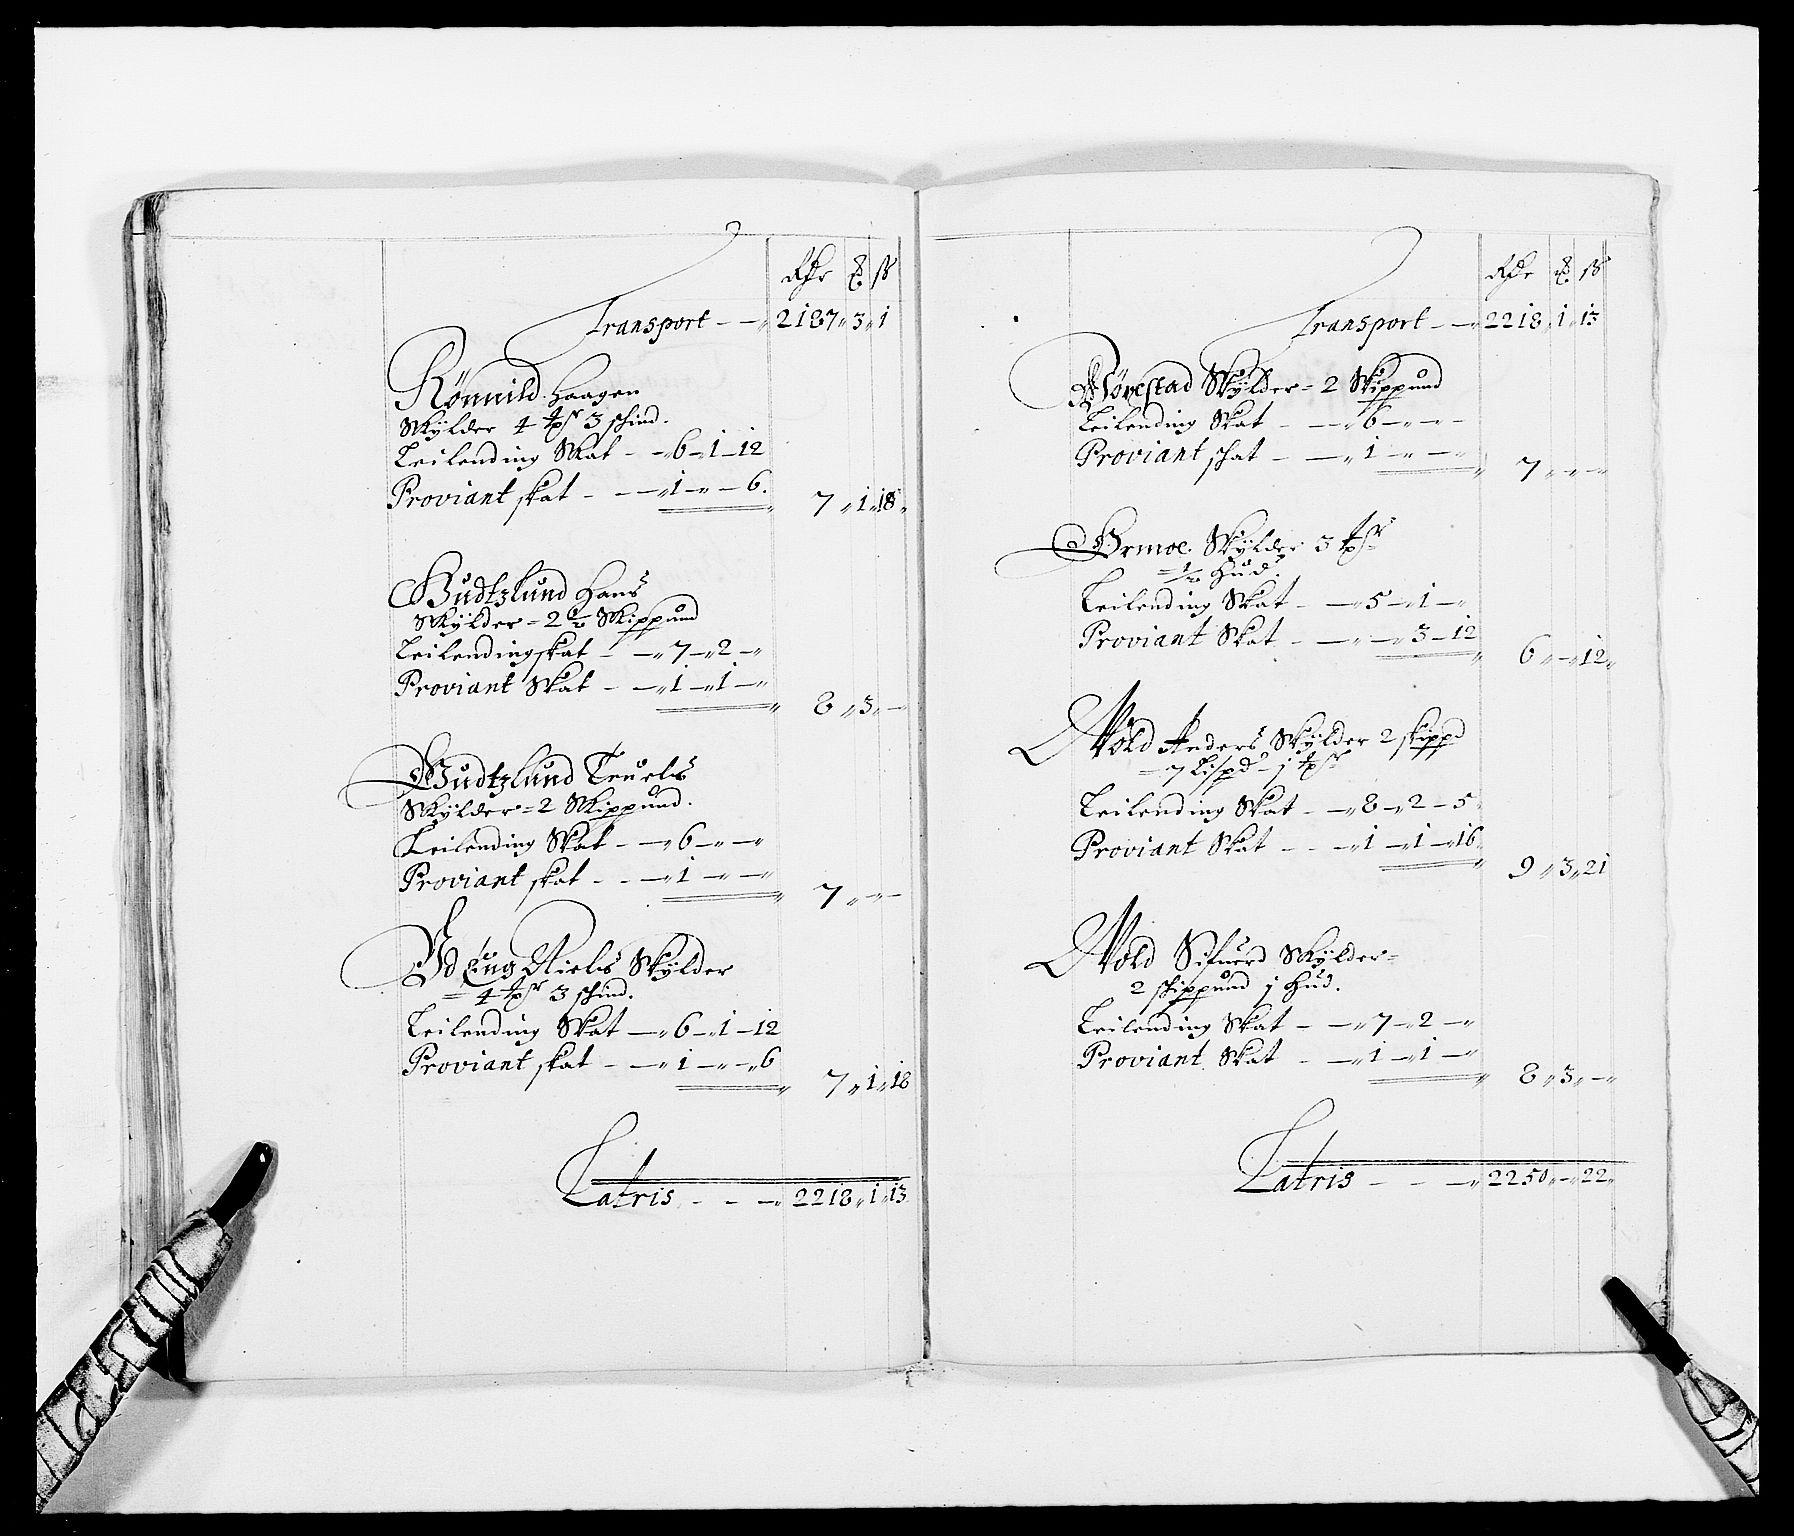 Rdr ß
Transport - - 2187 " 3 " 1
Rönnild Haagen
Skÿlder 4 tpr 3 schind.
Leilending Skat - - 6 - 1 - 12
Proviant skat - - - 1 - " - 6.
7 " 1 " 18 "
Gudtzlund Hans
Skÿlder = 2 ½ Skippund
Leilendingskat - - 7 - 2 - "
Proviant Skat - - 1 - 1 - "
8 " 3 " -
Gudtzlund Truels
Skÿlder = 2 Skippund.
Leilending Skat - - 6 - " - "
Proviant skat - - - 1 - " - "
7 " - " -
Niels Skÿlder
= 4 tpr 3 schind.
Leilending Skat - 6 - 1 - 12
Proviant skat - - 1 - " - 6
7 " 1 " 18
Latris - - - 2218 " 1 " 13
Rdr ß
Transport - - 2218 " 1 " 13
Skÿlder = 2 Skippund
Leilending Skat - - 6 - " - "
Proviant schat - - 1 - " - "
7 " - " - "
Ormoe Skÿlder 3 tpr
= ½ Hud.
Leilending Skat - - 5 - 1 - "
Proviant Skat - - " - 3 - 12
6 " - " 12 "
Wold Anders Skÿlder 2 skippd
= 7 Lispd - j tpr
Leilending Skat - - 8 - 2 - 5
Proviant Skat - - - 1 - 1 - 16
9 " 3 " 21
Wold Sifuerd Skÿlder =
2 schippund j Hud.
Leilending Skat - - 7 - 2 - "
Proviant Skat - - 1 - 1 - "
8 " 3 " - "
Latris - - - 2250 " - " 22 "